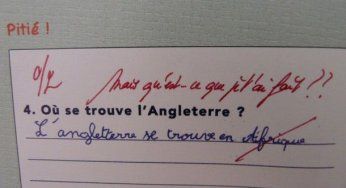 Pitié !
0/2 Mais qu'est-ce que j't'ai fait ??
4. Où se trouve l'Angleterre ?
L'angleterre se trouve en Afrique